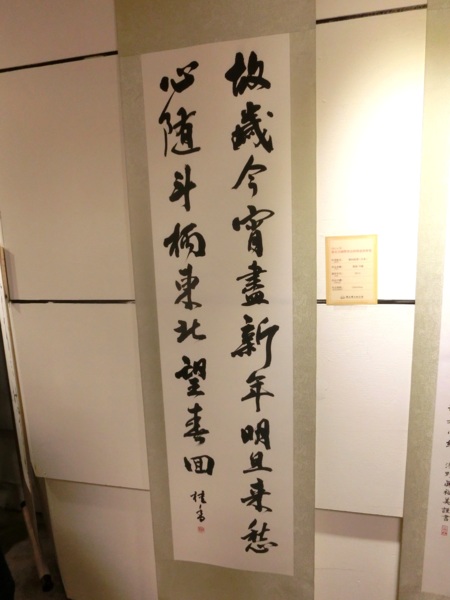 故歲今宵盡新年明旦来愁
心随斗柄東北望春回
桂香